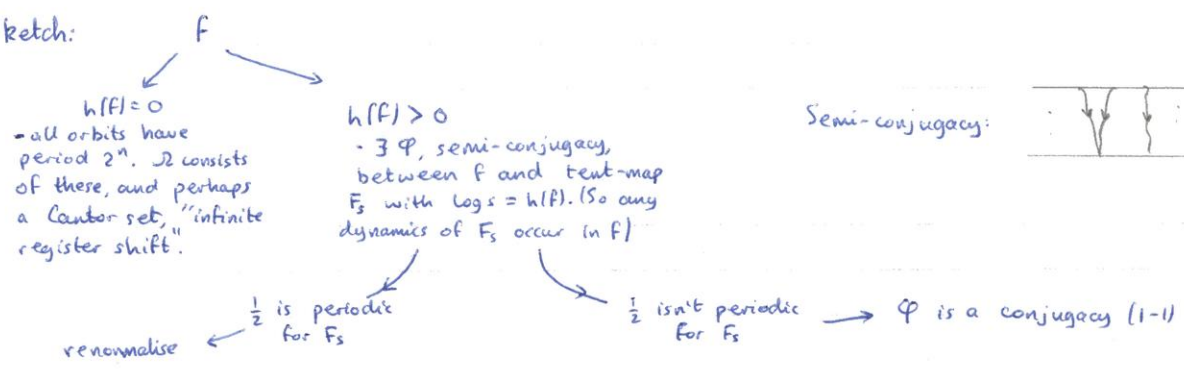 ketch:
f
h(f)=0
- all orbits have
period 2ⁿ. Ω consists
of these, and perhaps
a Cantor set, "infinite
register shift".
h(f) > 0
· ∃ φ, semi-conjugacy,
between f and tent-map
Fₛ with log s = h(f). (So any
dynamics of Fₛ occur in f)
Semi-conjugacy:
½ is periodic
for Fₛ
renormalise
½ isn't periodic
for Fₛ
φ is a conjugacy (1-1)